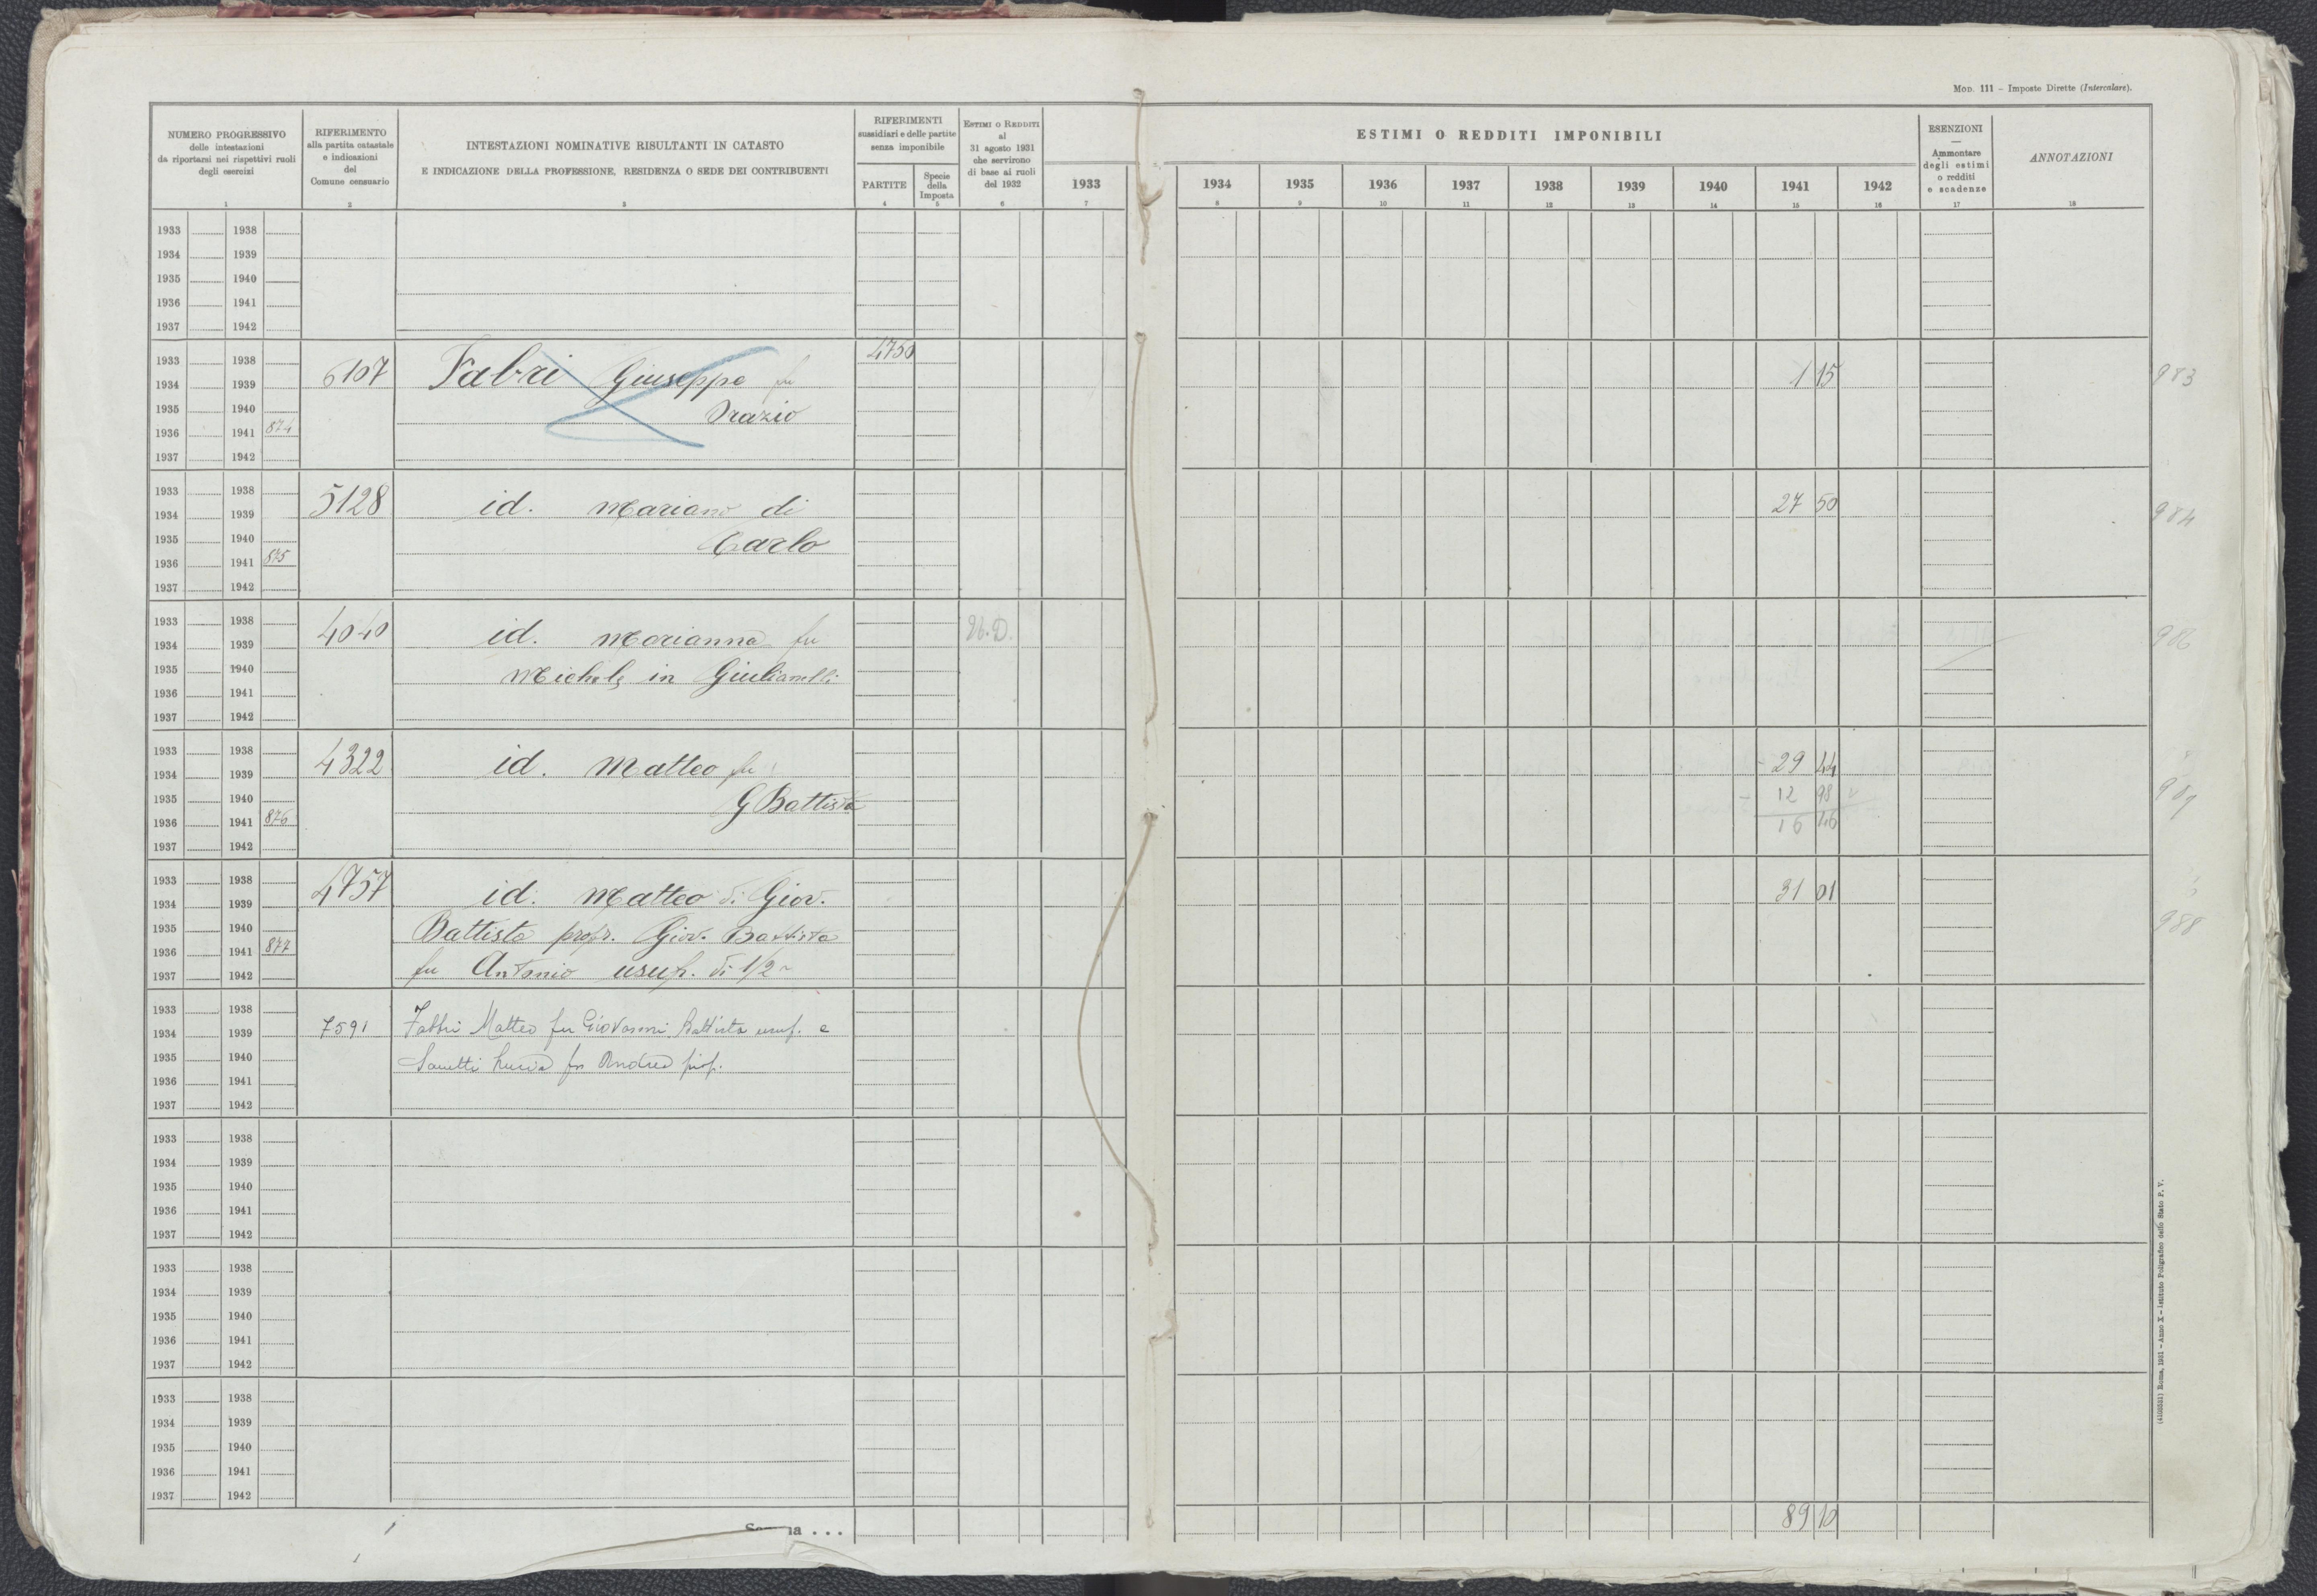 MOD. 111 – Imposte Dirette (Intercalare).
NUMERO PROGRESSIVO
delle intestazioni
da riportarsi nei rispettivi ruoli
degli esercizi
1
RIFERIMENTO
alla partita catastale
e indicazioni
del
Comune censuario
2
INTESTAZIONI NOMINATIVE RISULTANTI IN CATASTO
E INDICAZIONE DELLA PROFESSIONE, RESIDENZA O SEDE DEI CONTRIBUENTI
3
RIFERIMENTI
sussidiari e delle partite
senza imponibile
PARTITE
4
Specie
della
Imposta
5
ESTIMI O REDDITI
al
31 agosto 1931
che servirono
di base ai ruoli
del 1932
6
ESTIMI O REDDITI IMPONIBILI
1933 1934 1935 1936 1937 1938 1939 1940 1941 1942
7 8 9 10 11 12 13 14 15 16
ESENZIONI
—
Ammontare
degli estimi
o redditi
e scadenze
17
ANNOTAZIONI
18
1933 1938
1934 1939
1935 1940
1936 1941
1937 1942
1933 1938 4750
1934 1939 6107 Fabri Giuseppe fu 1 15 983
1935 1940 Orazio
1936 1941 874
1937 1942
1933 1938
1934 1939 5128 id. Mariano di 27 50 984
1935 1940 Carlo
1936 1941 875
1937 1942
1933 1938
1934 1939 4040 id. Marianna fu 986
1935 1940 Michele in Giulianelli
1936 1941
1937 1942
1933 1938
1934 1939 4322 id. Matteo fu 29 44
1935 1940 G Battista - 12 98
1936 1941 876 16 46
1937 1942
1933 1938
1934 1939 4757 id. Matteo di Giov. 31 01 988
1935 1940 Battista propr. Giov. Battista
1936 1941 877
1937 1942 fu Antonio usuf. di 1/2
1933 1938
1934 1939 7591 Fabbri Matteo fu Giovanni Battista usuf. e
1935 1940 Lucia fu Andrea prop.
1936 1941
1937 1942
1933 1938
1934 1939
1935 1940
1936 1941
1937 1942
1933 1938
1934 1939
1935 1940
1936 1941
1937 1942
1933 1938
1934 1939
1935 1940
1936 1941
1937 1942
89 10
(4100531) Roma, 1931 – Anno X – Istituto Poligrafico dello Stato P. V.